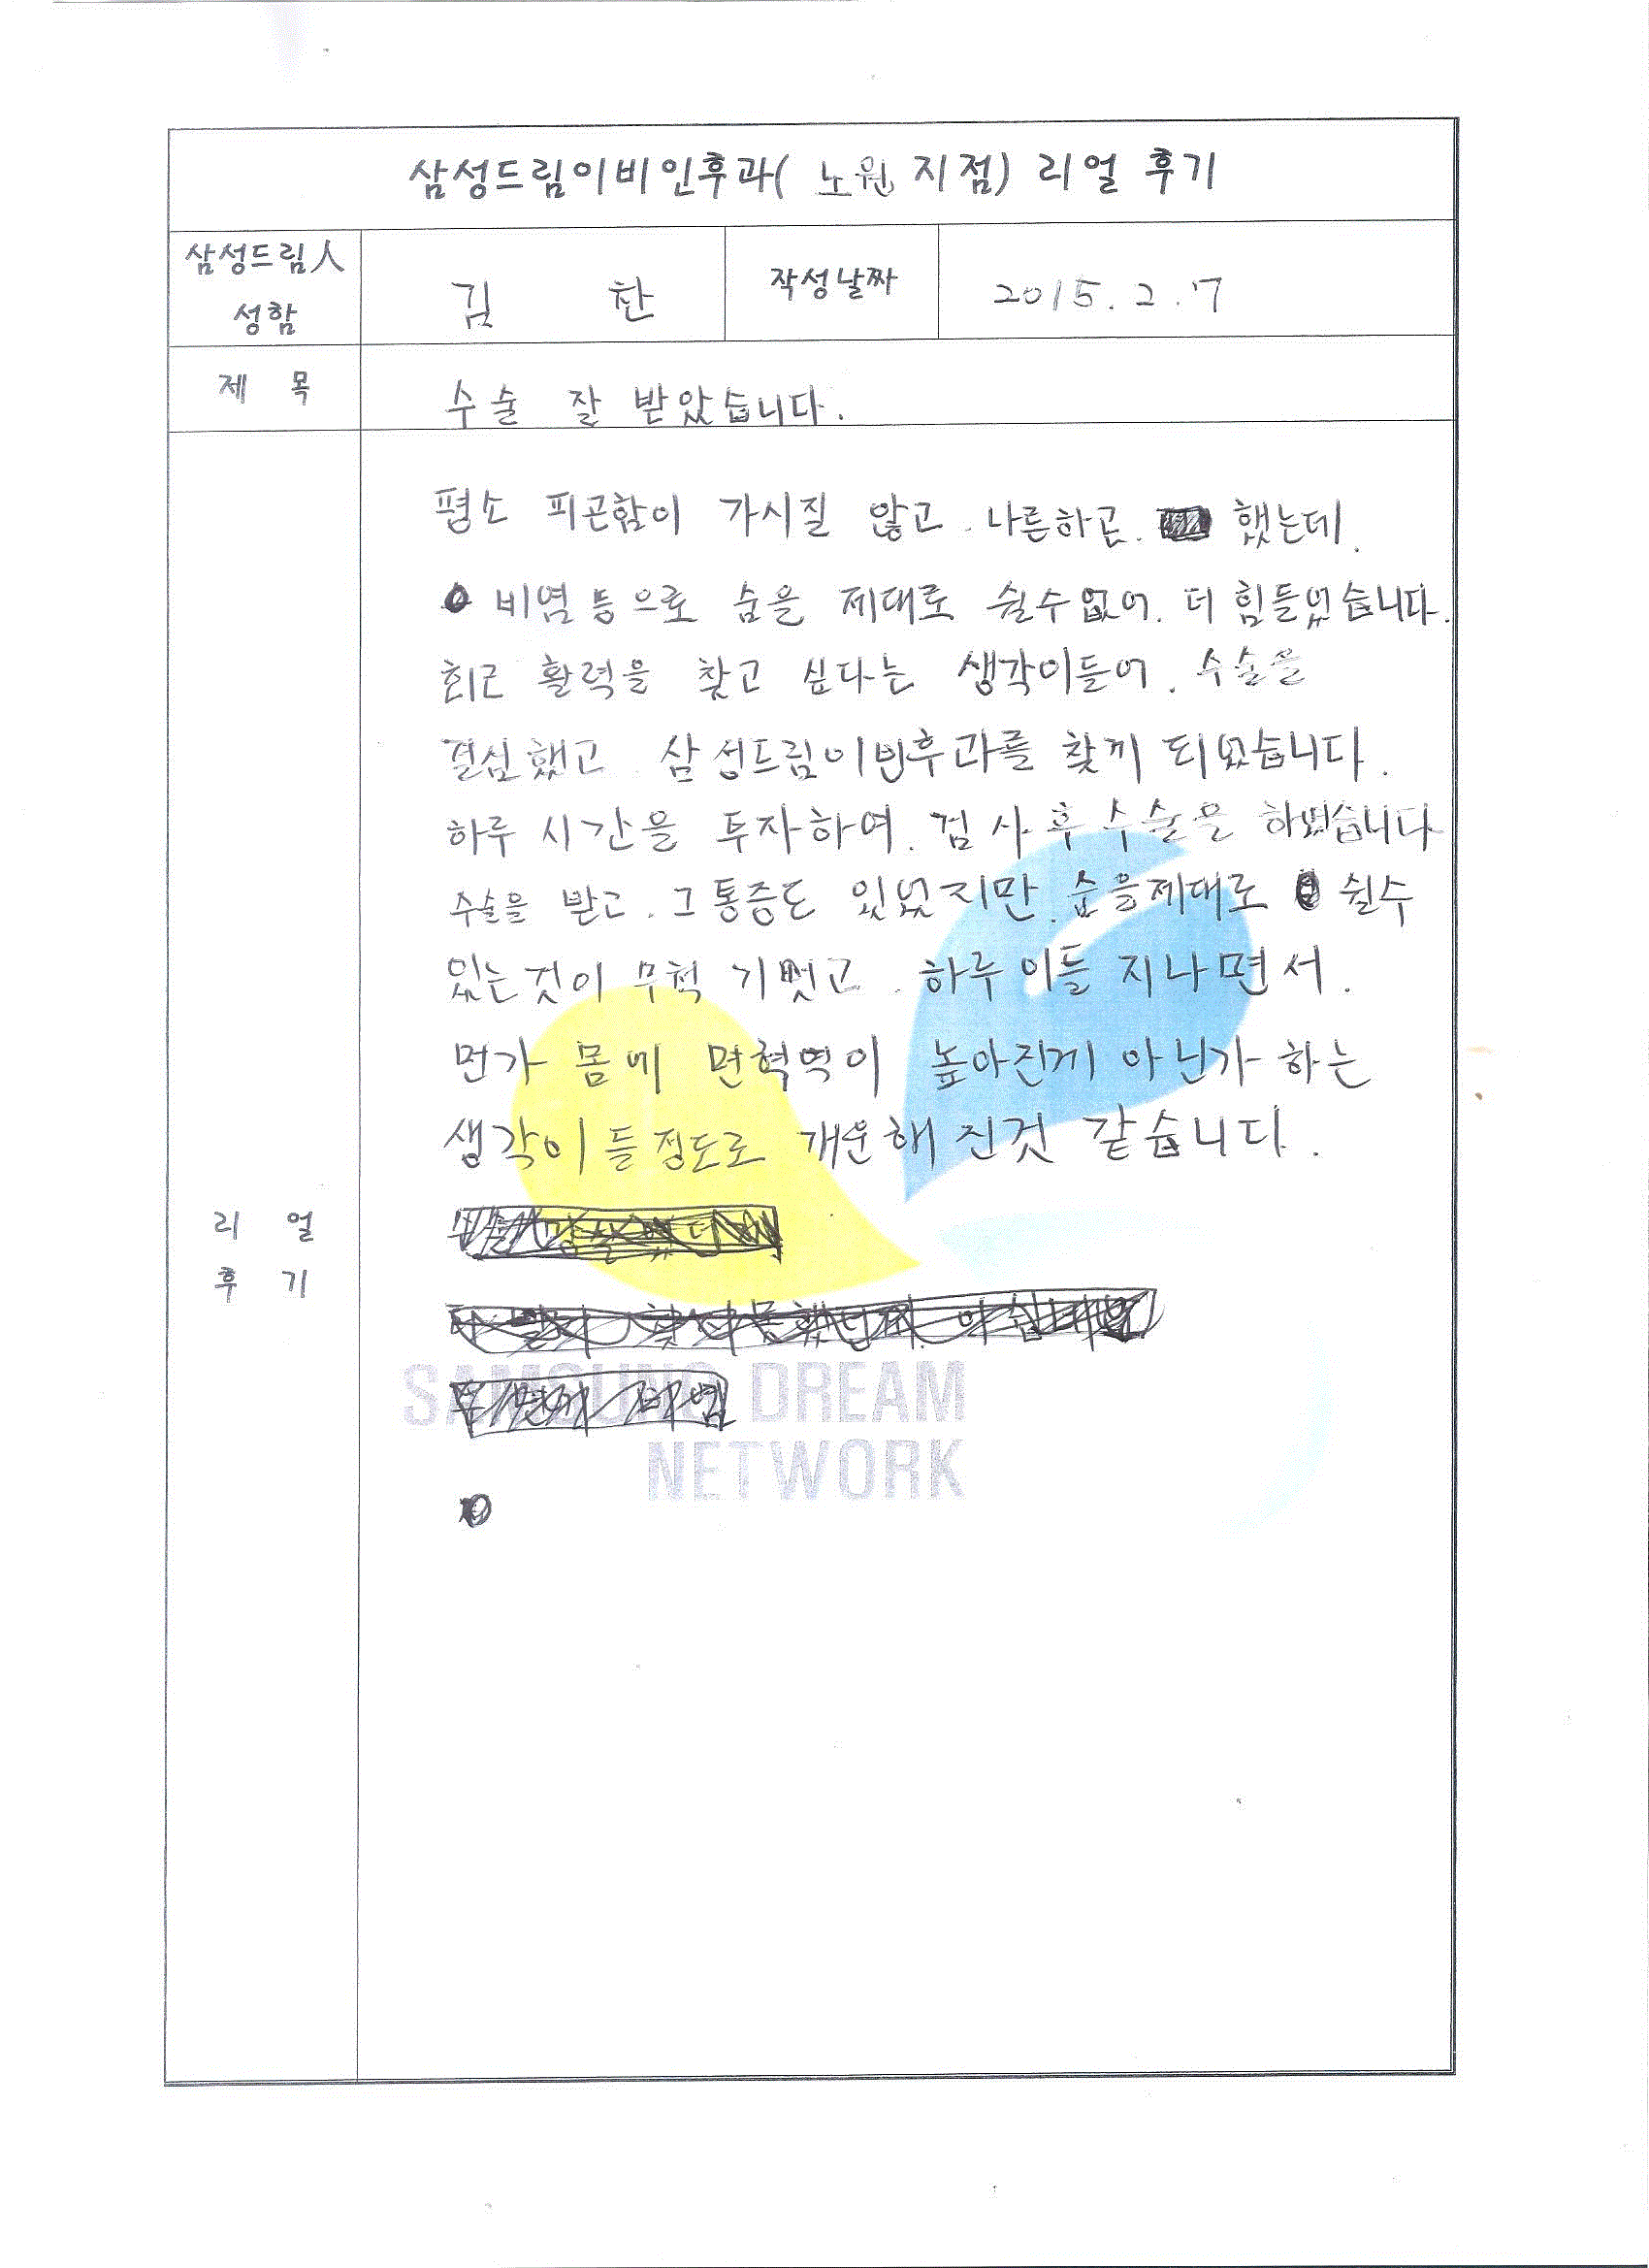 삼성드림이비인후과( 노원 지점) 리얼 후기
삼성드림人
성함
김 찬
작성날짜
2015. 2. 7
제 목
수술 잘 받았습니다.
평소 피곤함이 가시질 않고. 나른하곤. 했는데.
비염 등으로 숨을 제대로 쉴수 없어. 더 힘들었습니다.
최근 활력을 찾고 싶다는 생각이들어. 수술을
결심했고 삼성드림이빈후과를 찾끼 되었습니다.
하루 시간을 투자하여. 검사 후 수술을 하였습니다
수술을 받고. 그 통증도 있었지만. 숨을제대로 쉴수
있는 것이 무척 기뻣고. 하루 이틀 지나면서.
먼가 몸에 면혁역이 높아진게 아닌가 하는
생각이 들정도로 개운해 진것 같습니다.
리 얼
후 기
SAMSUNG DREAM
NETWORK